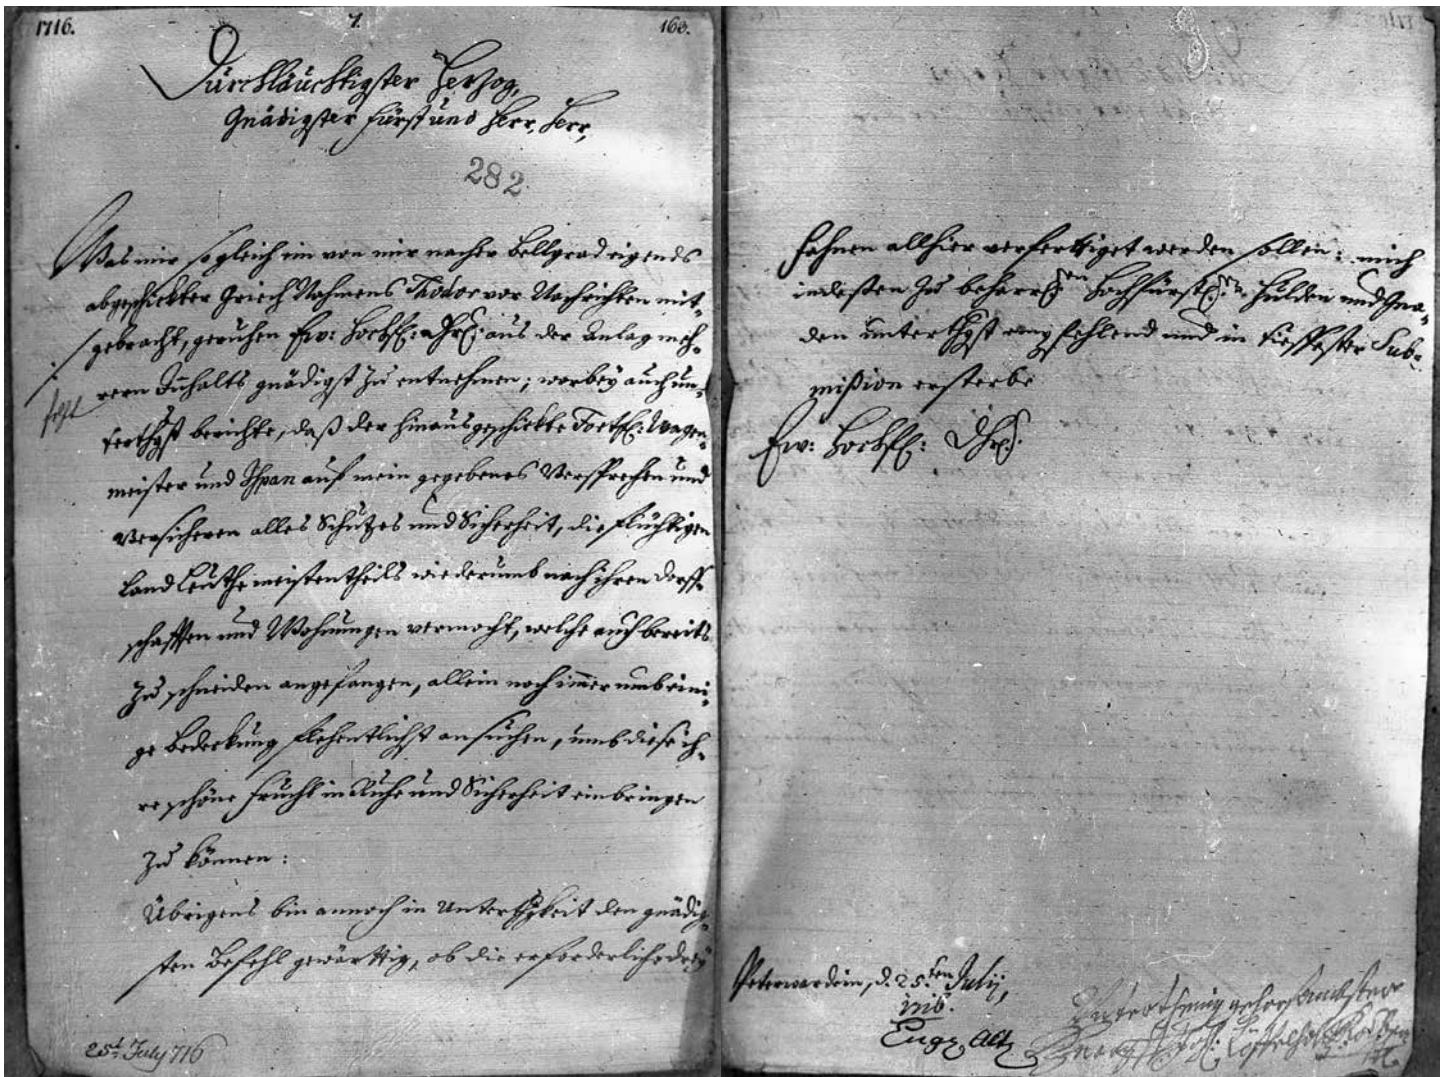 1716.
7.
163.
Durchläuchtigster Herzog,
Gnädigster Fürst und Herr, Herr,
282
Was mir sogleich im von mir nacher Bellgrad eigends
abgeschickter Griech Nahmens Thodor vor Nachrichten mit-
gebracht, geruhen Ew: Hochf: Dhl: aus der Anlag meh-
rern Inhalts gnädigst zu entnehmen; worbey auch un-
terthgst berichte, daß der hinausgeschickte Wagen-
meister und Ihpan auf mein gegebenes Versprechen und
Versicheren alles Schutzes und Sicherheit, die flüchtigen
Land Leuthe meistentheils wiederumb nach ihren Dorff-
schafften und Wohnungen vermocht, welche auch bereits
zu schneiden angefangen, allein noch immer umb eini-
ge Bedeckung flehentlichst ansuchen, umb diese ih-
re schöne Frucht in Ruhe und Sicherheit einbringen
zu können:
Übrigens bin annoch in Unterthgkeit den gnädig-
sten Befehl gewärttig, ob die erforderliche drey
25t July 716
Fahnen allhier verferttiget werden sollen; mich
indessen zu beharrl: en Hochfürstl: en Hulden und Gna-
den unterthgst empfehlend und in tieffester Sub-
mission ersterbe
Ew: Hochf: Dhl:
Peterwardein, d. 25ten Julij,
1716.
Eugy Act
Unterthänig gehorsambster
Löffelholz